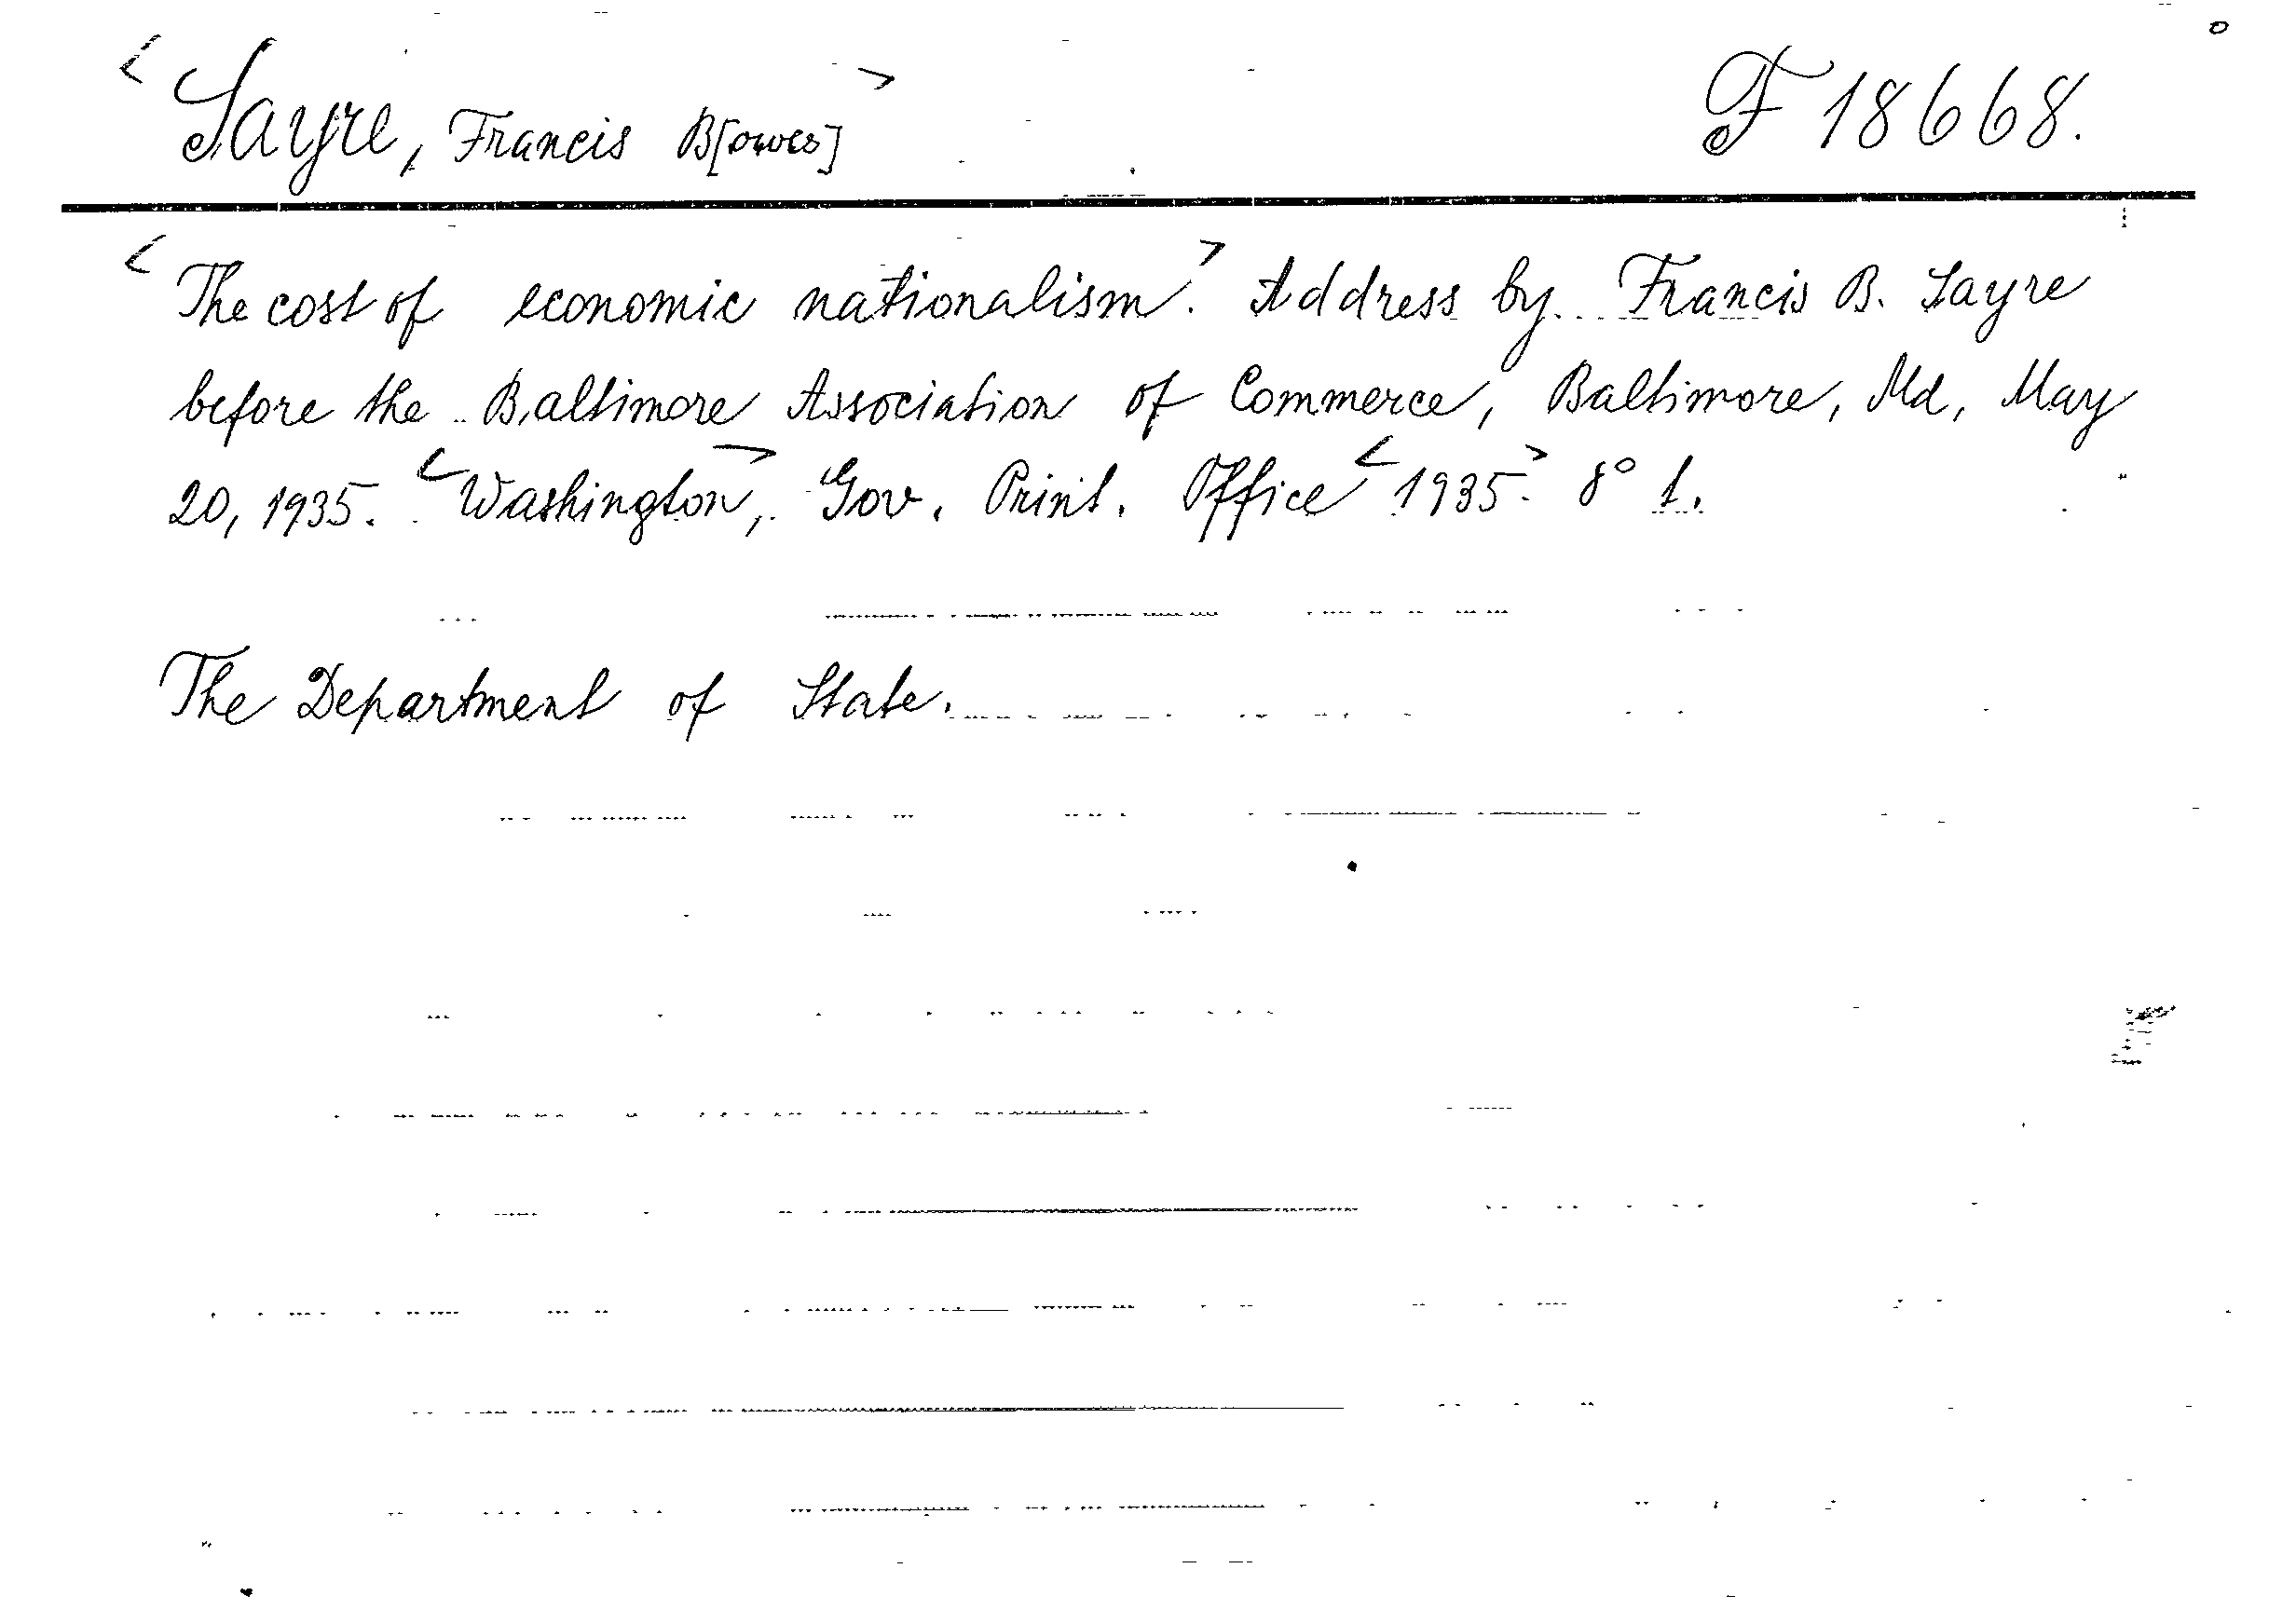 <Sayre, Francis B[owes]> F 18668.
<The cost of economic nationalism>. Address by Francis B. Sayre
before the Baltimore Association of Commerce, Baltimore, Md, May
20, 1935. <Washington>, Gov. Print. Office <1935>. 8° 1.
The Department of State.